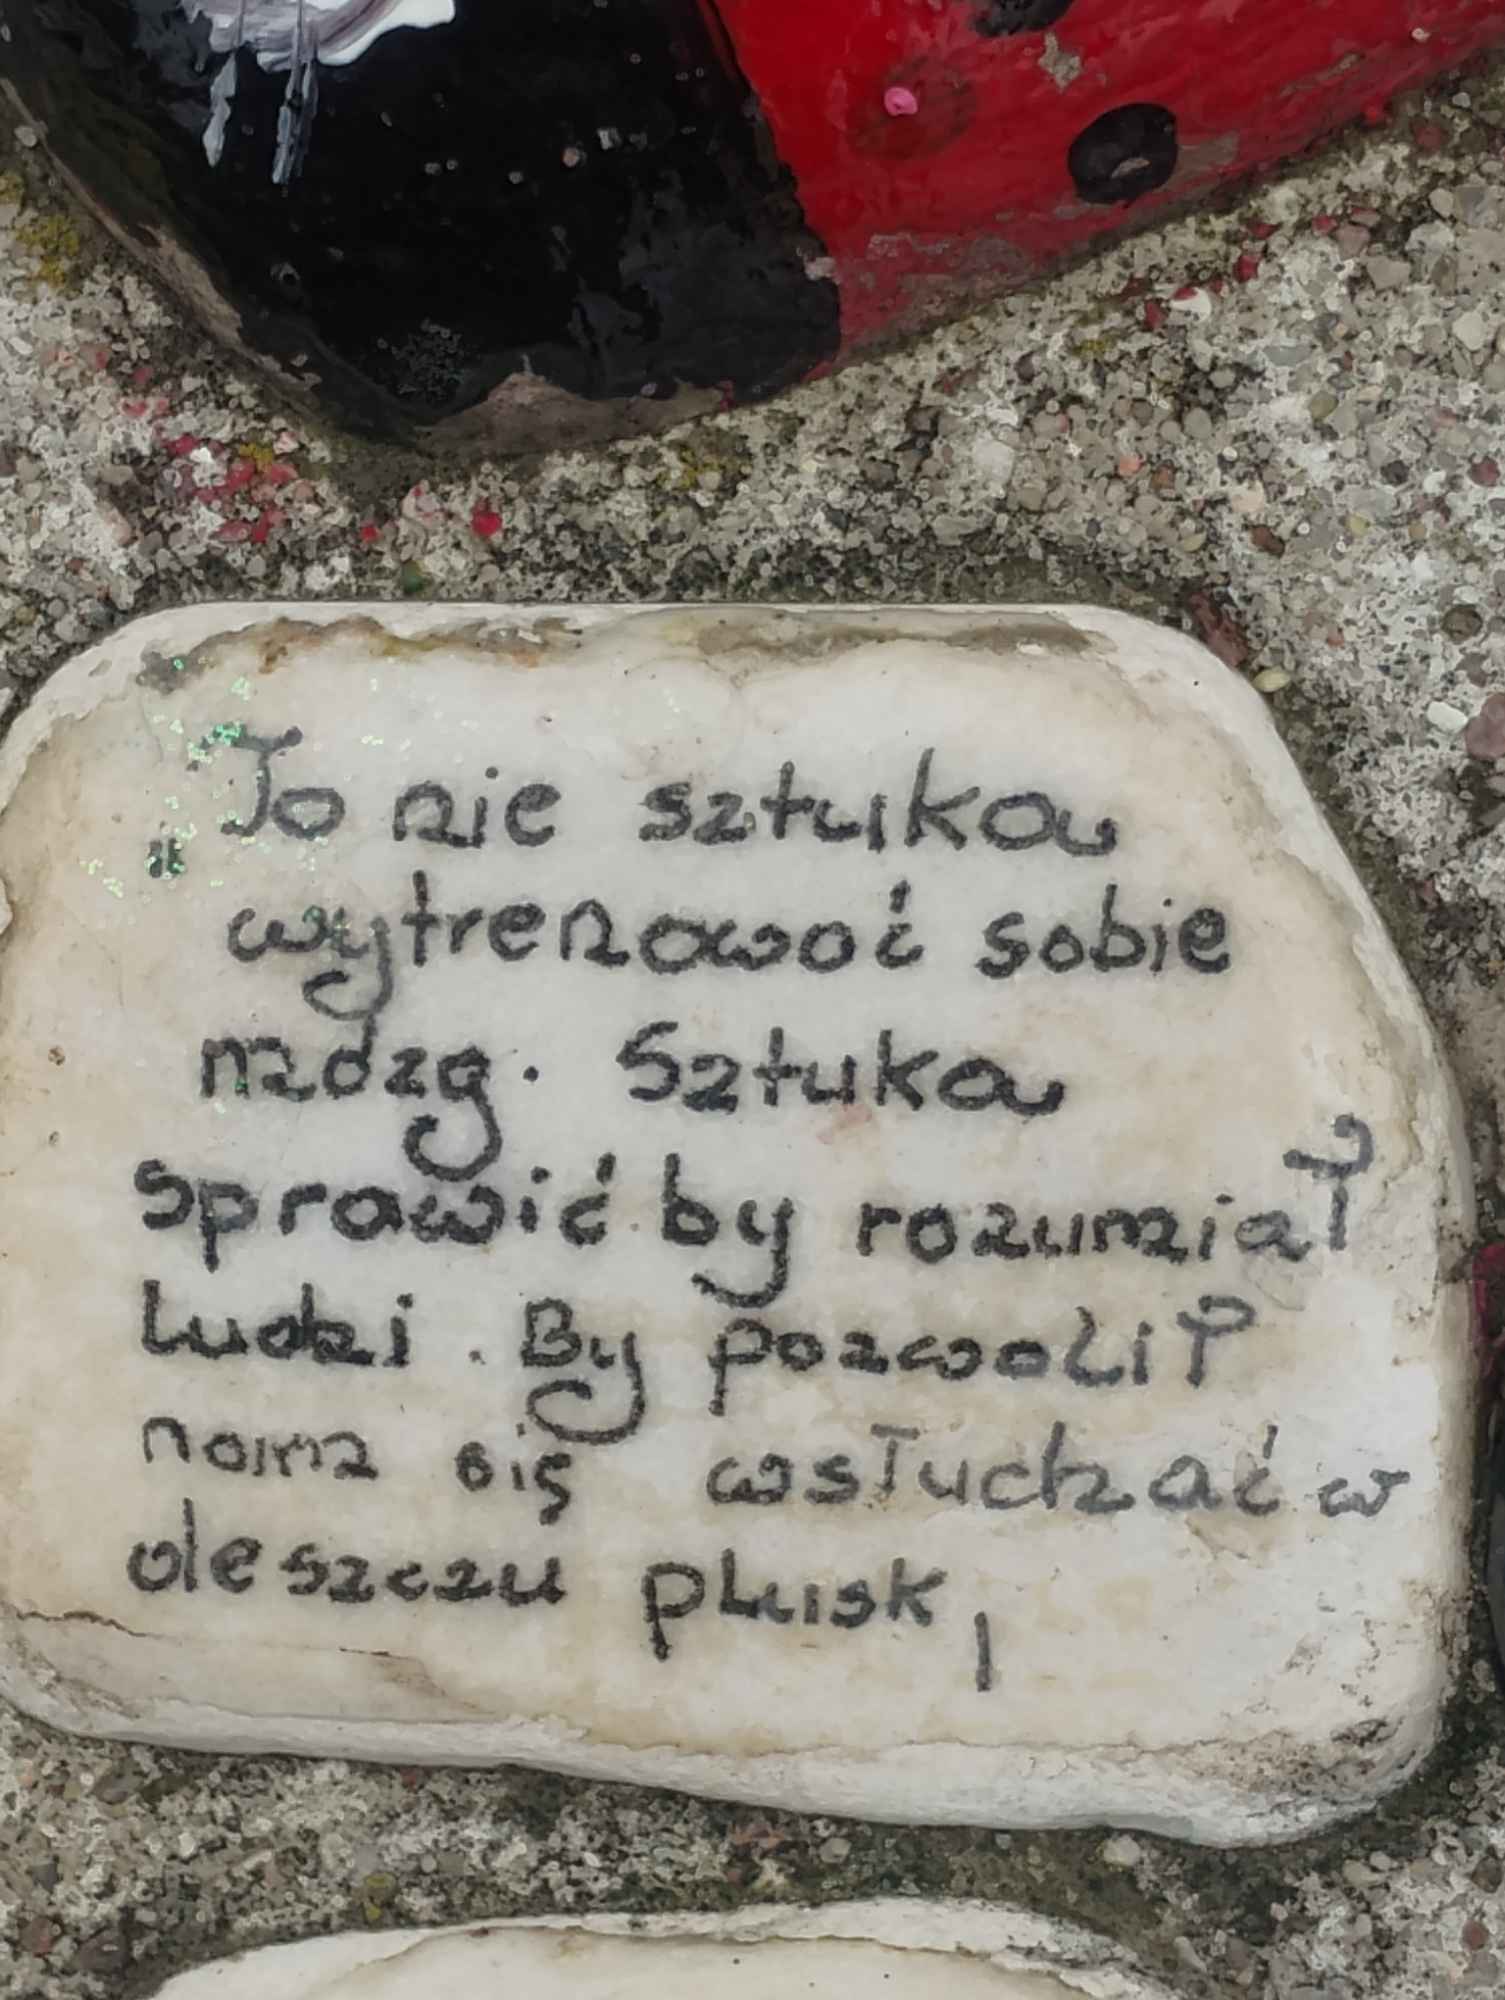 „To nie sztuka
wytrenować sobie
mózg. Sztuka
sprawić by rozumiał
ludzi. By pozwolił
nam się wsłuchać w
deszczu plusk,